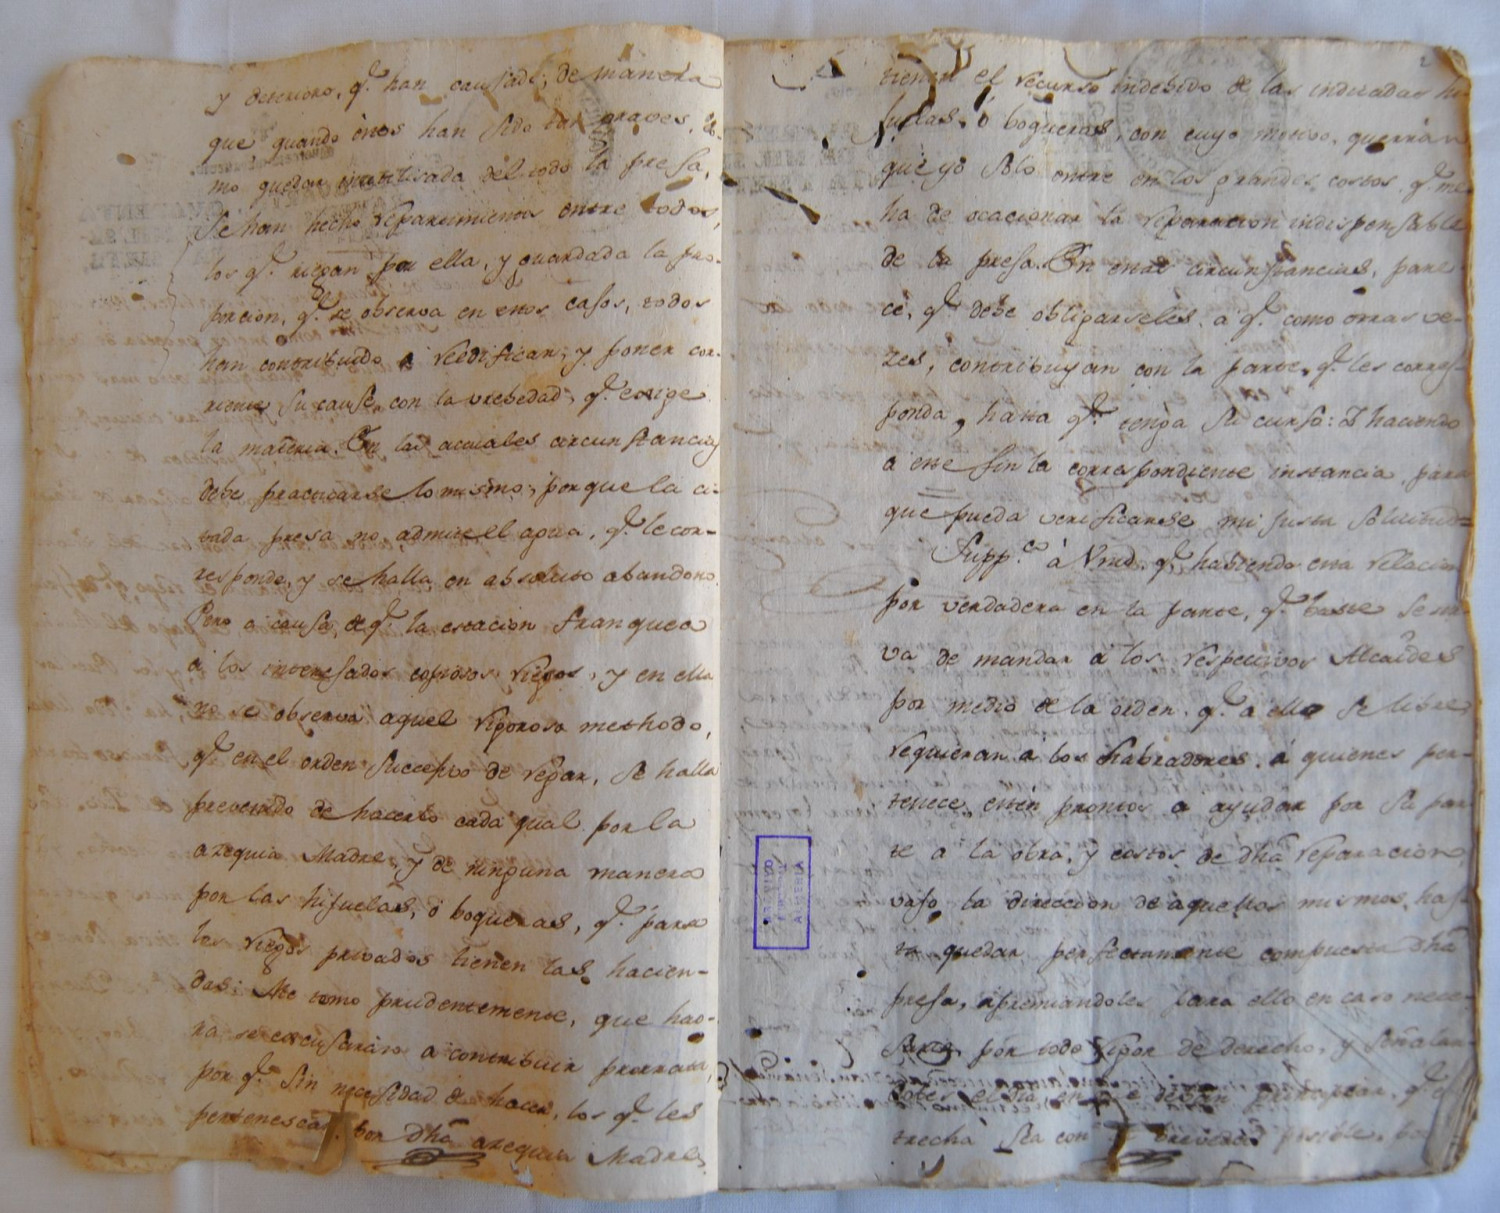 y deterioro, q.e han causado; de manera
que quando éstos han sido tan graves, co-
mo quedar inutilisada del todo la presa,
se han hecho repartimientos entre todos,
los q.e riegan por ella, y guardada la pro-
porcion, q.e se observa en estos casos, todos
han contribuido a reedificar, y poner cor-
riente su cause, con la brebedad, q.e exige
la materia. En las actuales circunstancias
debe practicarse lo mismo, porque la ci-
tada presa no admite el agua, q.e le cor-
responde, y se halla en absoluto abandono.
Pero a causa, de q.e la estacion franquea
a los interesados copiosos riegos, y en ella
no se observa aquel rigoroso methodo,
q.e en el orden successivo de regar, se halla
prevenido de hacerlo cada qual por la
azequia Madre, y de ninguna manera
por las hijuelas, ó boqueras, q.e para
los riegos privados tienen las hacien-
das: Me temo prudentemente, que hao-
ra se escusarán a contribuir prorrata,
por q.e sin necesidad de hacer, los q.e les
pertenescan por dhã azequia Madre,
2
tienen el recurso indebido de las indicadas hi-
juelas, ó boqueras, con cuyo motivo, querrán
que yo solo entre en los grandes costos, q.e me
ha de ocacionar la reparacion indispensable
de la presa. En estas circunstancias, pare-
ce, q.e debe obligarseles, a q.e como otras ve-
zes, contribuyan con la parte, q.e les corres-
ponda, hasta q.e tenga su curso: Y haciendo
a este fin la correspondiente instancia, para
que pueda verificarse mi justa solicitud=
Supp.co à Vmd. q.e habiendo esta relacion
por verdadera en la parte, q.e baste se sir-
va de mandar a los respectivos Alcaldes
por medio de la orden, q.e a ello se libre,
requieran a los Labradores, á quienes per-
tenece, estén prontos a ayudar por su par-
te a la obra, y costos de dhã reparacion
vajo la direccion de aquellos mismos, has-
ta quedar perfectamente compuesta dhã
presa, apremiandoles para ello en caso nece-
sario por todo rigor de derecho, y señalan-
doles el dia, en que deban principiar, q.e
trecha sea con la brevedad posible, por